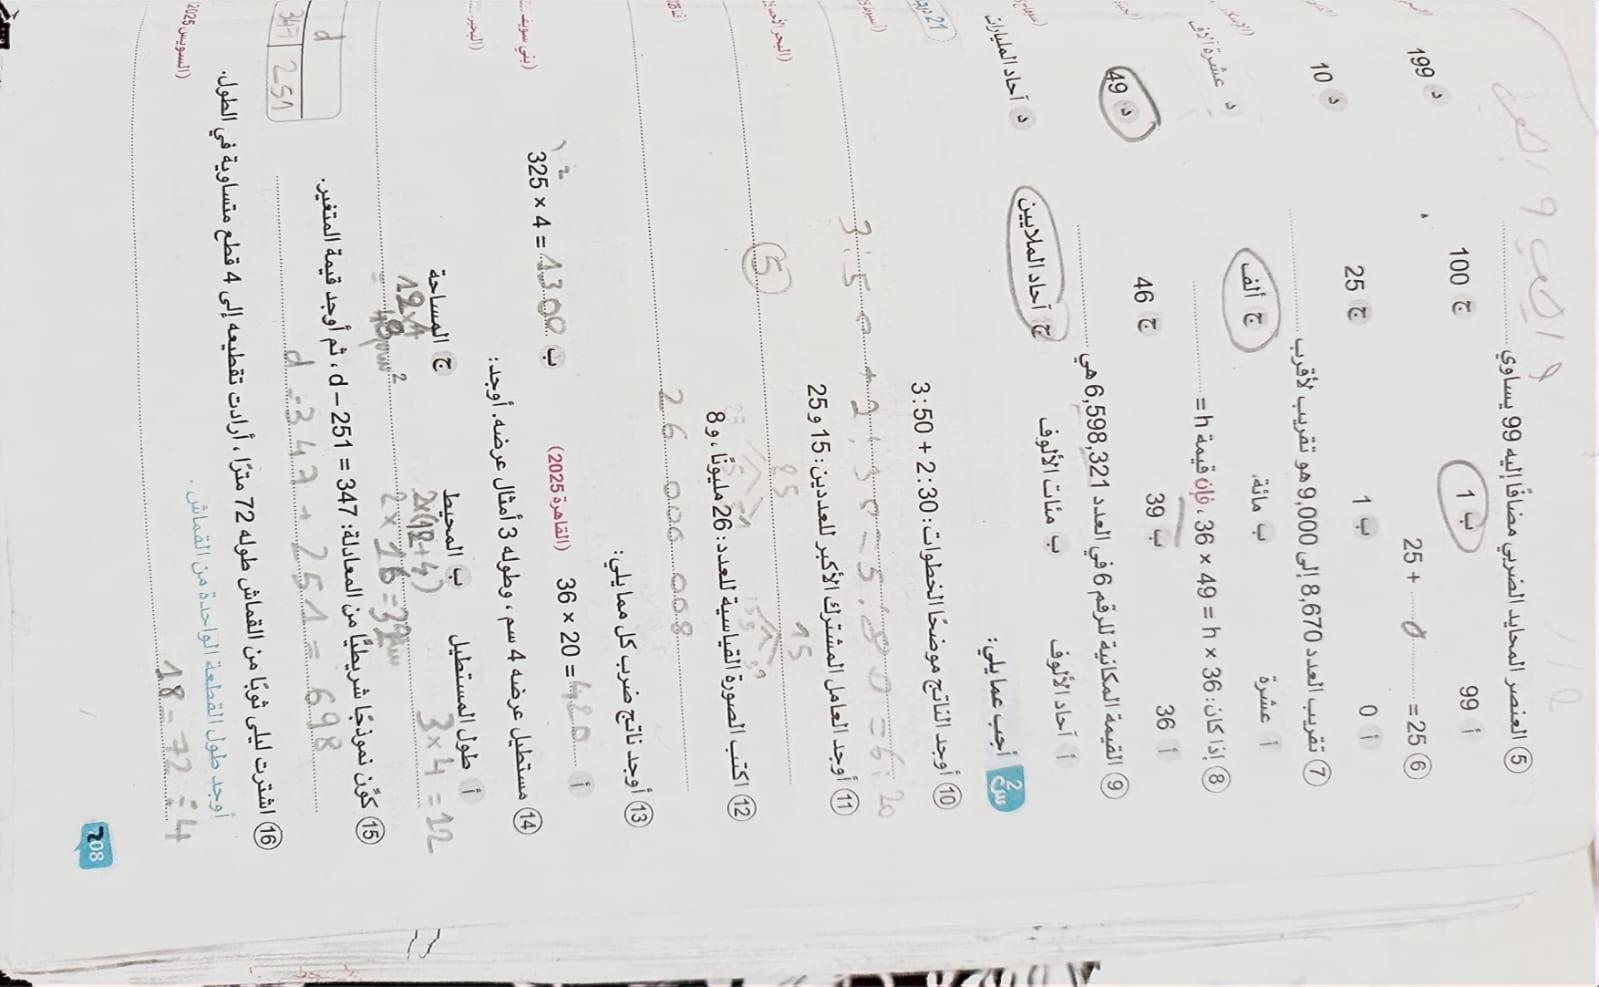 ⑤ العنصر المحايد الضربي مضافًا إليه 99 يساوي
أ 99 ب 1 ج 100 د 199
⑥ 25 = ........ + 25
أ 0 ب 1 ج 25 د 10
⑦ تقريب العدد 8,670 إلى 9,000 هو تقريب لأقرب
أ عشرة ب مائة ج ألف د عشرة آلاف
⑧ إذا كان: 36 × h = 49 × 36، فإن قيمة h =
أ 36 ب 39 ج 46 د 49
⑨ القيمة المكانية للرقم 6 في العدد 6,598,321 هي
أ آحاد الألوف ب مئات الألوف ج آحاد الملايين د آحاد المليارات
س2 أجب عما يلي:
⑩ أوجد الناتج موضحًا الخطوات: 2:30 + 3:50
⑪ أوجد العامل المشترك الأكبر للعددين: 15 و 25
15 25
5
⑫ اكتب الصورة القياسية للعدد: 26 مليونًا، و 8
26 000 008
⑬ أوجد ناتج ضرب كل مما يلي:
أ 36 × 20 = ب 325 × 4 = 1300
(القاهرة 2025)
⑭ مستطيل عرضه 4 سم، وطوله 3 أمثال عرضه. أوجد:
(بني سويف
أ طول المستطيل ب المحيط ج المساحة
3 × 4 = 12
2×(12+4)
2 × 16 = 32 سم
12×4
48 سم²
⑮ كوّن نموذجًا شريطيًّا من المعادلة: d – 251 = 347، ثم أوجد قيمة المتغير.
d = 347 + 251 = 698
d
347 251
⑯ اشترت ليلى ثوبًا من القماش طوله 72 مترًا، أرادت تقطيعه إلى 4 قطع متساوية في الطول.
أوجد طول القطعة الواحدة من القماش.
(السويس 2025
18 = 72 ÷ 4
208